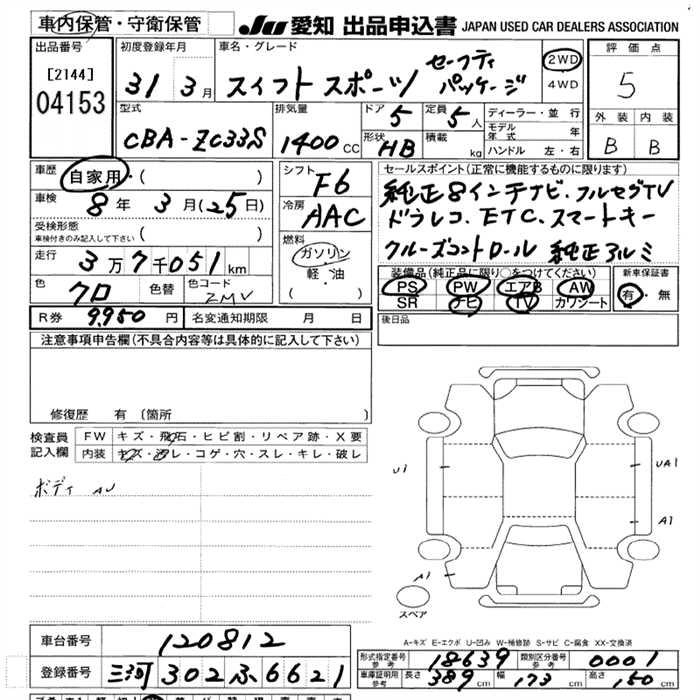 車内保管・守衛保管
JU 愛知 出品申込書 JAPAN USED CAR DEALERS ASSOCIATION
出品番号
[2144]
04153
初度登録年月
31 3月
車名・グレード
スイフトスポーツ セーフティパッケージ
2WD
4WD
評価点
5
外装 内装
B B
型式
CBA-ZC33S
排気量
1400cc
ドア
5
定員
5人
形状
HB
積載
kg
ディーラー・並行
モデル年式 年
ハンドル 左・右
車歴
自家用・( )
車検
8年 3月(25日)
受検形態
車検付きのみ記入して下さい ( )
走行
3万7千051km
色
クロ
色替
色コード
ZMV
シフト
F6
冷房
AAC
燃料
ガソリン
軽・油
( )
セールスポイント(正常に機能するものに限ります)
純正8インチナビ.フルセグTV
ドラレコ.ETC.スマートキー
クルーズコントロール 純正アルミ
装備品(純正品に限り○をつけてください)
PS PW エアB AW
SR ナビ TV カワシート
新車保証書
有・無
R券 9,950円 名変通知期限 月 日
後日品
注意事項申告欄(不具合内容等は具体的に記入して下さい)
修復歴 有(箇所 )
検査員記入欄
FW キズ・飛石・ヒビ割・リペア跡・X要
内装 キズ・汚レ・コゲ・穴・スレ・キレ・破レ
ボディ AU
U1
UA1
A1
A1
スペア
A-キズ E-エクボ U-凹み W-補修跡 S-サビ C-腐食 XX-交換済
車台番号 120812
登録番号 三河 302 ふ 6621
形式指定番号参考 18639 類別区分番号参考 0001
車庫証明用参考 長さ 389cm 幅 173cm 高さ 150cm